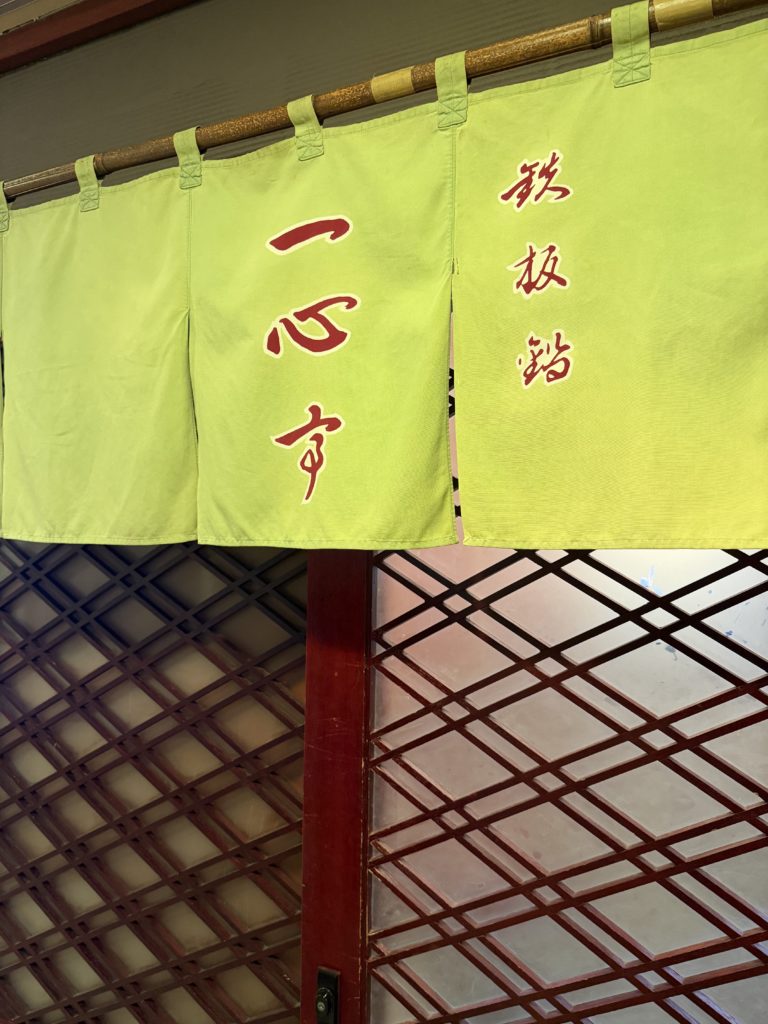 鉄板鍋
一心亭